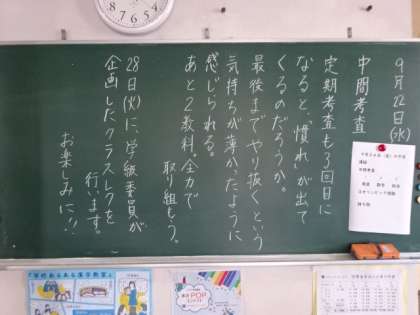 9月22日(水)
中間考査
定期考査も3回目に
なると、“慣れ”が出て
くるのだろうか。
最後までやり抜くという
気持ちが薄かったように
感じられる。
あと2教科。全力で
取り組もう。
28日(火)に、学級委員が
企画したクラスレクを
行います。
お楽しみに!!